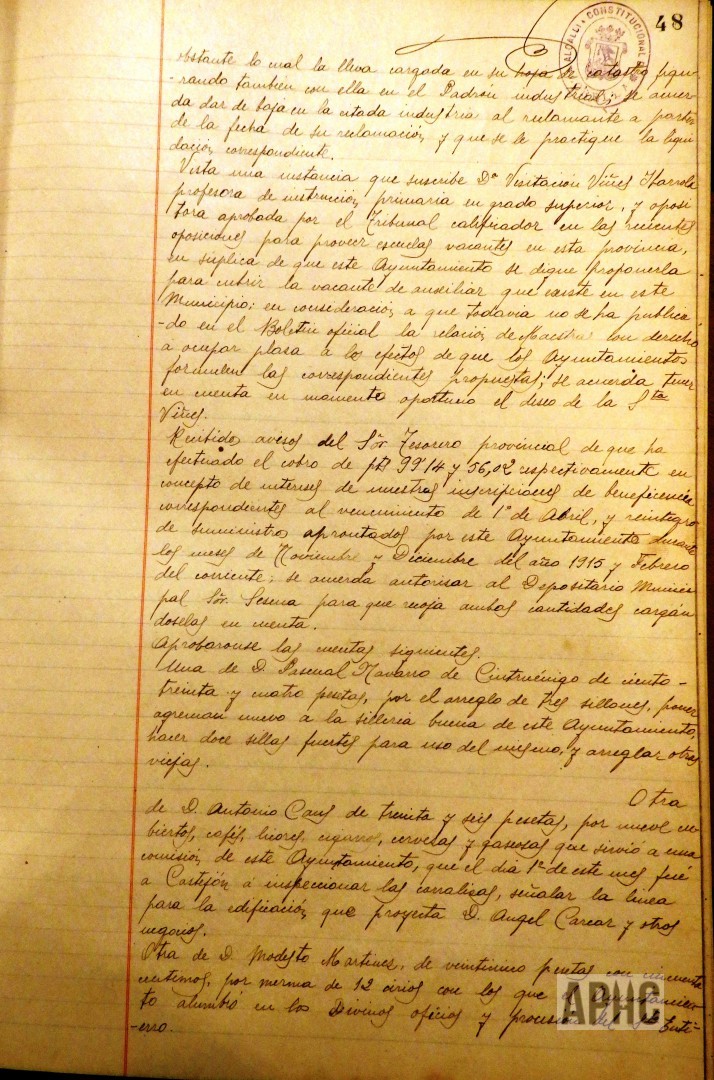 48
ALCALDIA CONSTITUCIONAL
obstante lo cual la lleva cargada en su hoja de catastro figu-
-rando tambien con ella en el Padrón industrial; se acuer-
da dar de baja en la citada industria al reclamante a partir
de la fecha de su reclamación y que se le practique la liqui-
dación correspondiente.
Vista una instancia que suscribe Dª Visitación Viñes Ibarrola
profesora de instrucción primaria en grado superior, y oposi
tora aprobada por el Tribunal calificador en las recientes
oposiciones para proveer escuelas vacantes en esta provincia,
en suplica de que este Ayuntamiento se digne proponerla
para cubrir la vacante de auxiliar que existe en este
Municipio: en consideración a que todavia no se ha publica
-do en el Boletin oficial la relación de Maestras con derecho
a ocupar plasa a los efectos de que los Ayuntamientos
formulen las correspondientes propuestas; se acuerda tener
en cuenta en momento oportuno el deseo de la Sta
Viñes.
Recibidos avisos del Sõr Tesorero provincial de que ha
efectuado el cobro de pts 99'14 y 56,02 respectivamente en
concepto de intereses de nuestras inscripciones de beneficencia
correspondientes al vencimiento de 1º de Abril, y reintegro
de suministros aprontados por este Ayuntamiento durante
los meses de Noviembre y Diciembre del año 1915 y Febrero
del corriente; se acuerda autorisar al Depositario Munici
pal Sõr. Sesma para que recoja ambas cantidades cargán
doselas en cuenta.
Aprobaronse las cuentas siguientes.
Una de D. Pascual Navarro de Cintruénigo de ciento-
treinta y cuatro pesetas, por el arreglo de tres sillones, poner
agreman nuevo a la silleria buena de este Ayuntamiento,
hacer doce sillas fuertes para uso del mismo, y arreglar otras
viejas.
Otra
de D. Antonio Caus de treinta y seis pesetas, por nueve cu-
biertos, cafés, licores, cigarros, cervesas y gaseosas que sirvió a una
comisión de este Ayuntamiento, que el dia 1º de este mes fué
a Castejón á inspeccionar las corralisas, señalar la linea
para la edificación que proyecta D. Angel Carcar y otros
negocios.
Otra de D. Modesto Martines, de veintinueve pesetas con cincuenta
centimos, por merma de 12 cirios con los que el Ayuntamien-
to alumbró en los Divinos oficios y procesión del Sto Enti-
-erro.
APHC